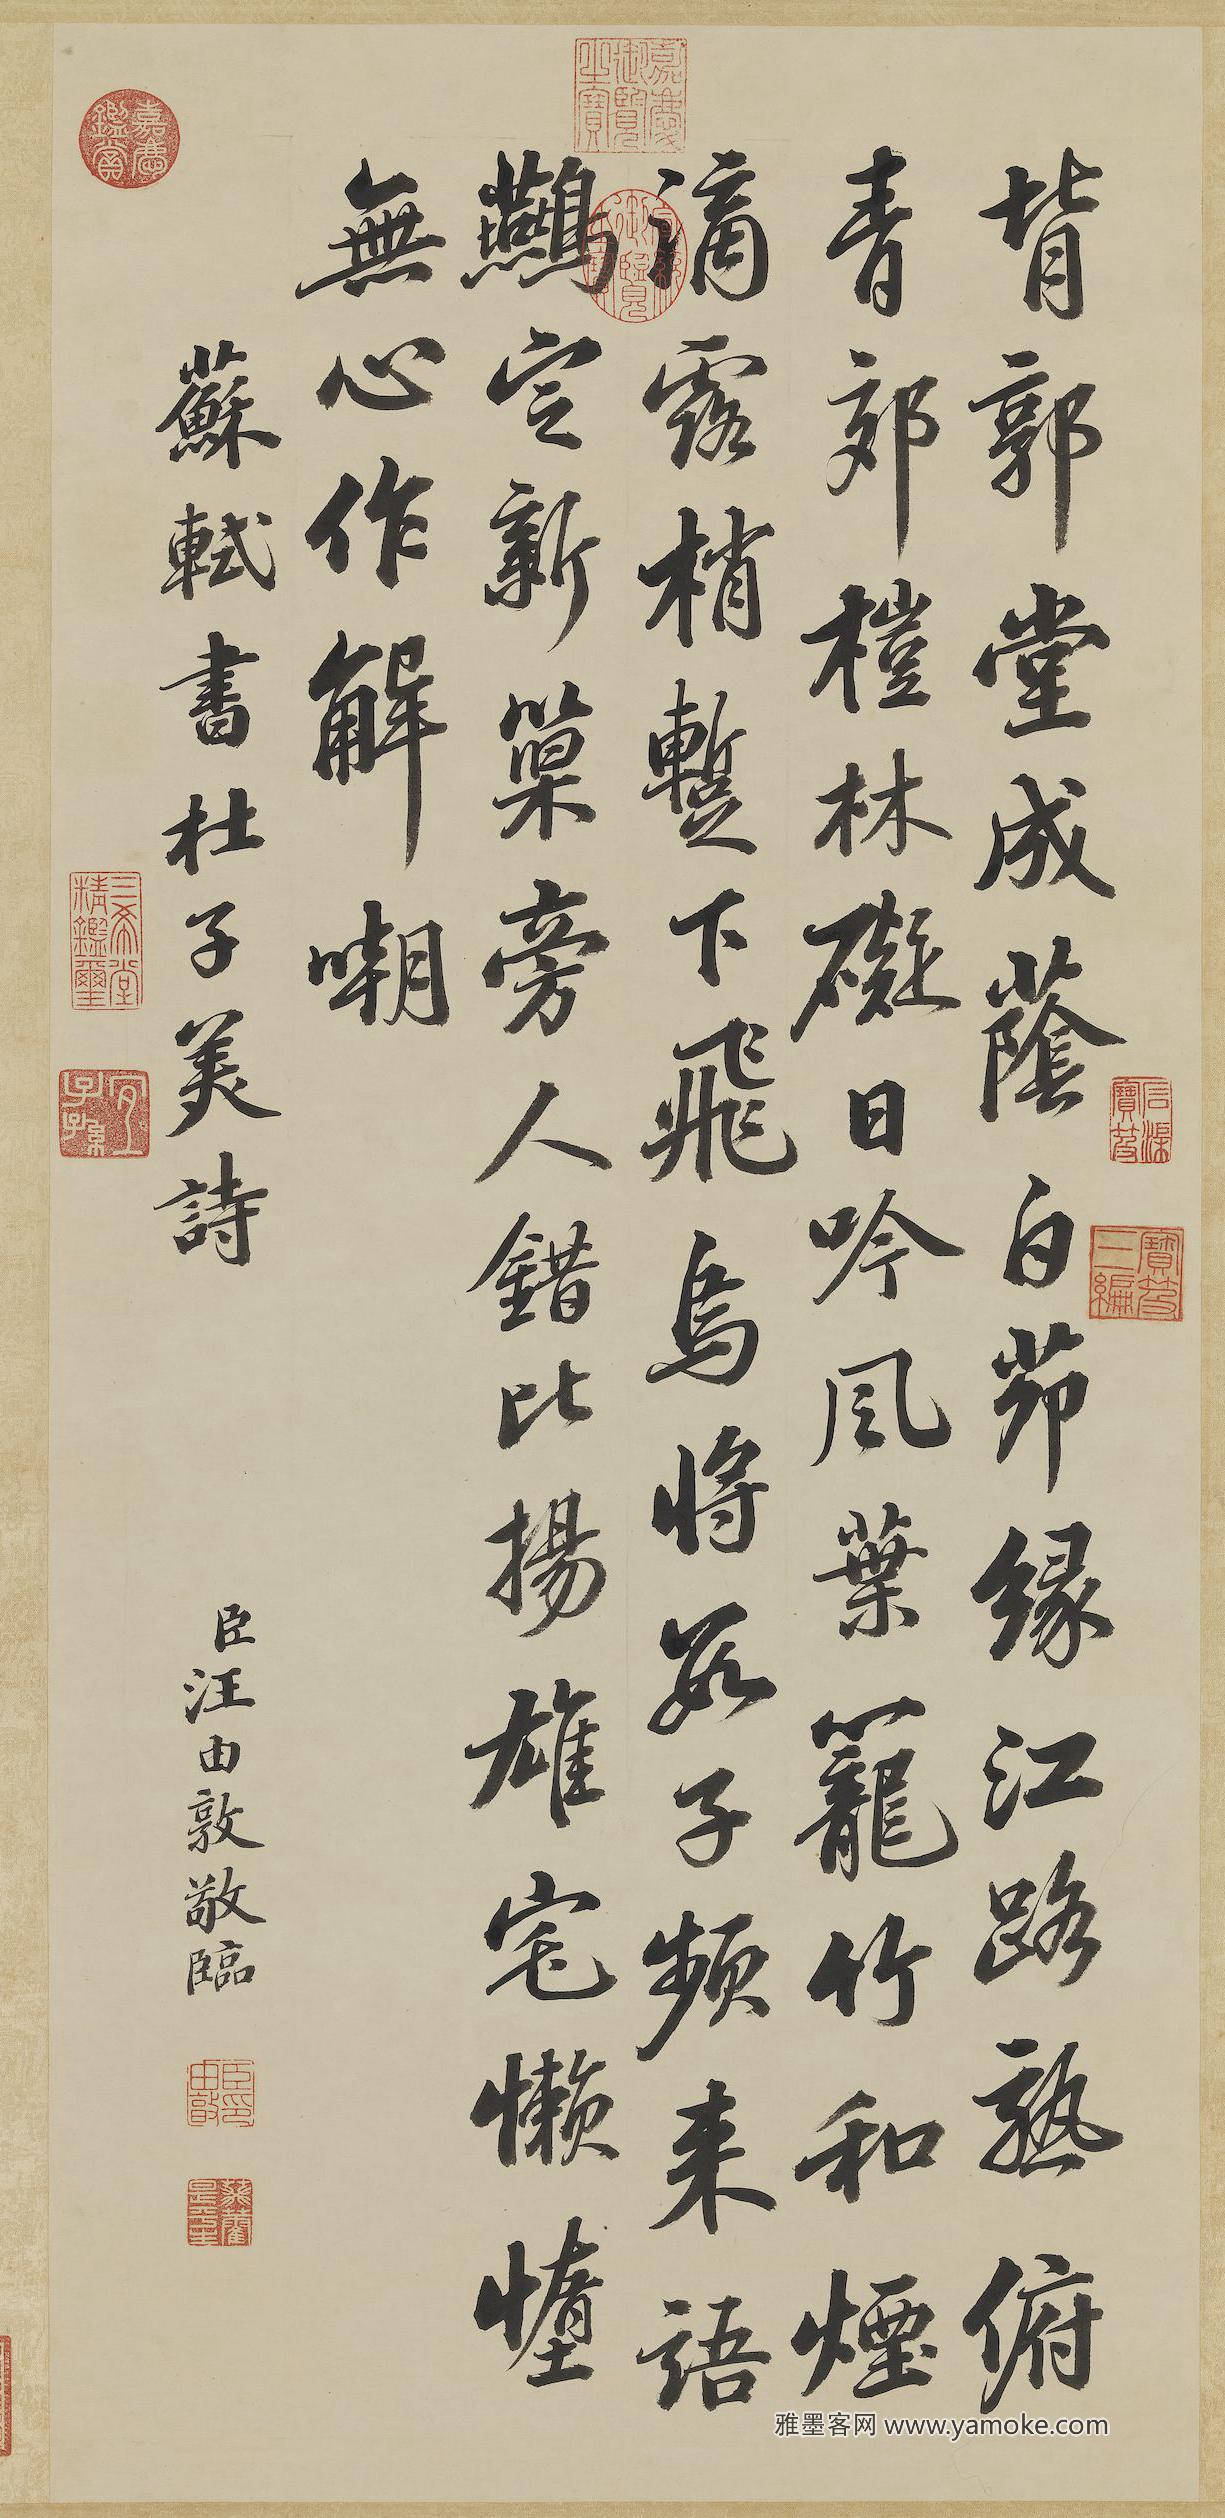 背郭堂成蔭白茆緣江路熟俯
青郊榿林礙日吟風葉籠竹和煙
滴露梢蹔下飛烏將數子頻來語
鷰定新巢旁人錯比揚雄宅懶惰
無心作解嘲
蘇軾書杜子美詩
臣汪由敦敬臨
嘉慶御覽之寶
嘉慶鑑賞
三希堂精鑑璽
宜子孫
石渠寶笈
寶笈三編
臣由敦印
雅墨客网 www.yamoke.com